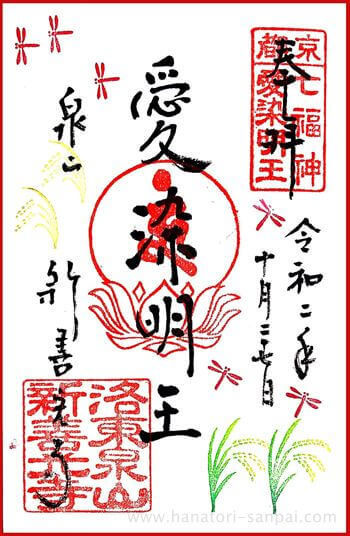 京都
七福神
愛染明王
奉拝
令和二年
十月二七日
愛染明王
泉山
新善光寺
洛東泉山
新善光寺
www.hanatori-sanpai.com